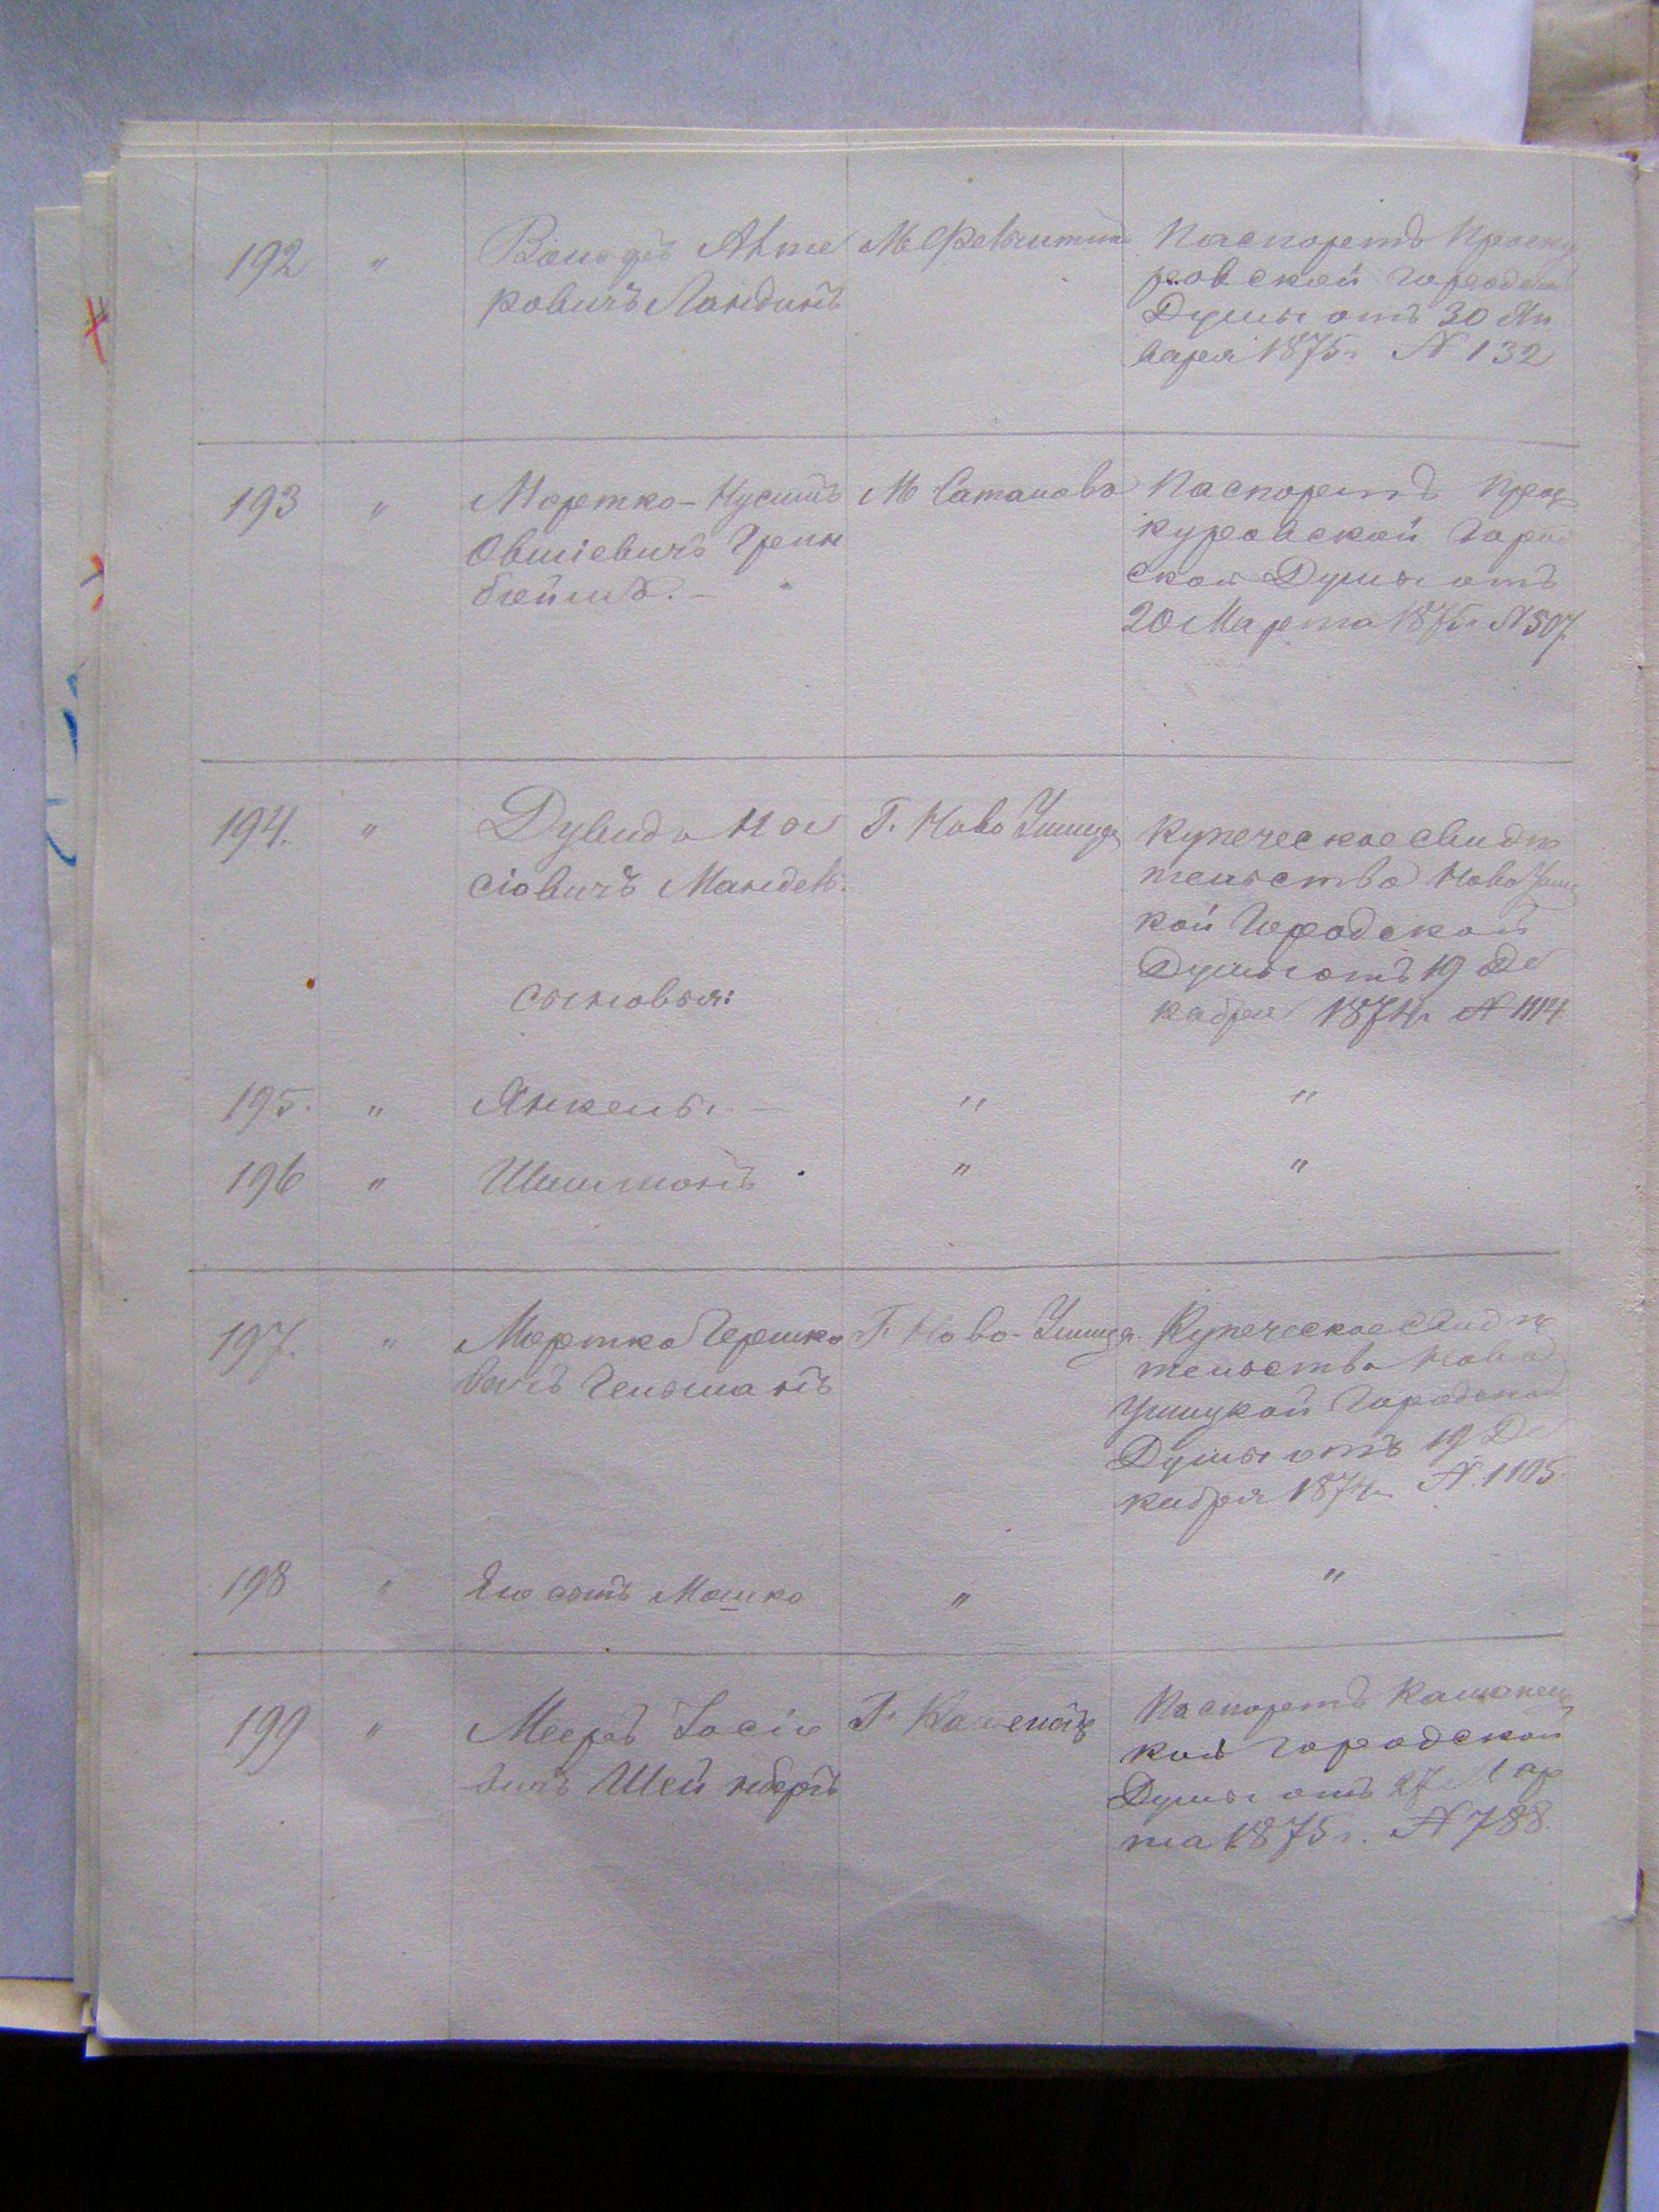 192 " Ань
ровичъ Ландинъ
М Фельштинъ
Паспортъ Проску
ровской Городской
Думы отъ 30 Ян
варя 1875 г. N 132
193 " Мортко-Нусинъ
Овшіевичъ Грин
блейтъ. –
М Сатановъ
Паспортъ Прос
куровской Город
ской Думы отъ
20 Марта 1875 г N 507
194. " Дувидъ Иос
сіовичъ Мандель.
сыновья:
Г. Ново Ушица
Купеческое свидѣ
тельство Ново Ушиц
кой Городской
Думы отъ 19 Де
кабря 1874 г N 1114
195. " Янкель. – " "
196 " Шимонъ " "
197. " Мортко Гершко
вичъ Гельманъ
Г. Ново-Ушица
Купеческое свидѣ
тельство Ново
Ушицкой Городской
Думы отъ 19 Де
кабря 1874 г N. 1105
198 " Его сынъ Мошко " "
199 " Мееръ Іосіо
вичъ Шейнберъ
Г. Каменецъ
Паспортъ Каменец
кой Городской
Думы отъ 27 Мар
та 1875 г. N 788.